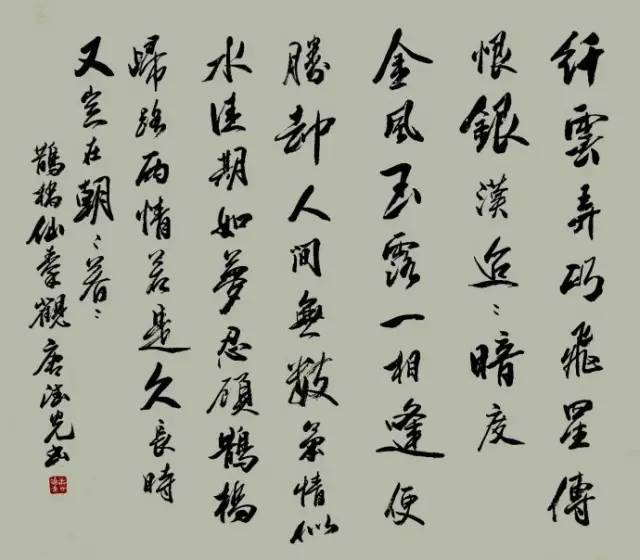 纤雲弄巧飛星傳
恨銀漢迢〻暗度
金風玉露一相逢便
勝却人間無數柔情似
水佳期如夢忍顧鵲橋
歸路兩情若是久長時
又豈在朝〻暮〻
鵲橋仙秦觀唐光书